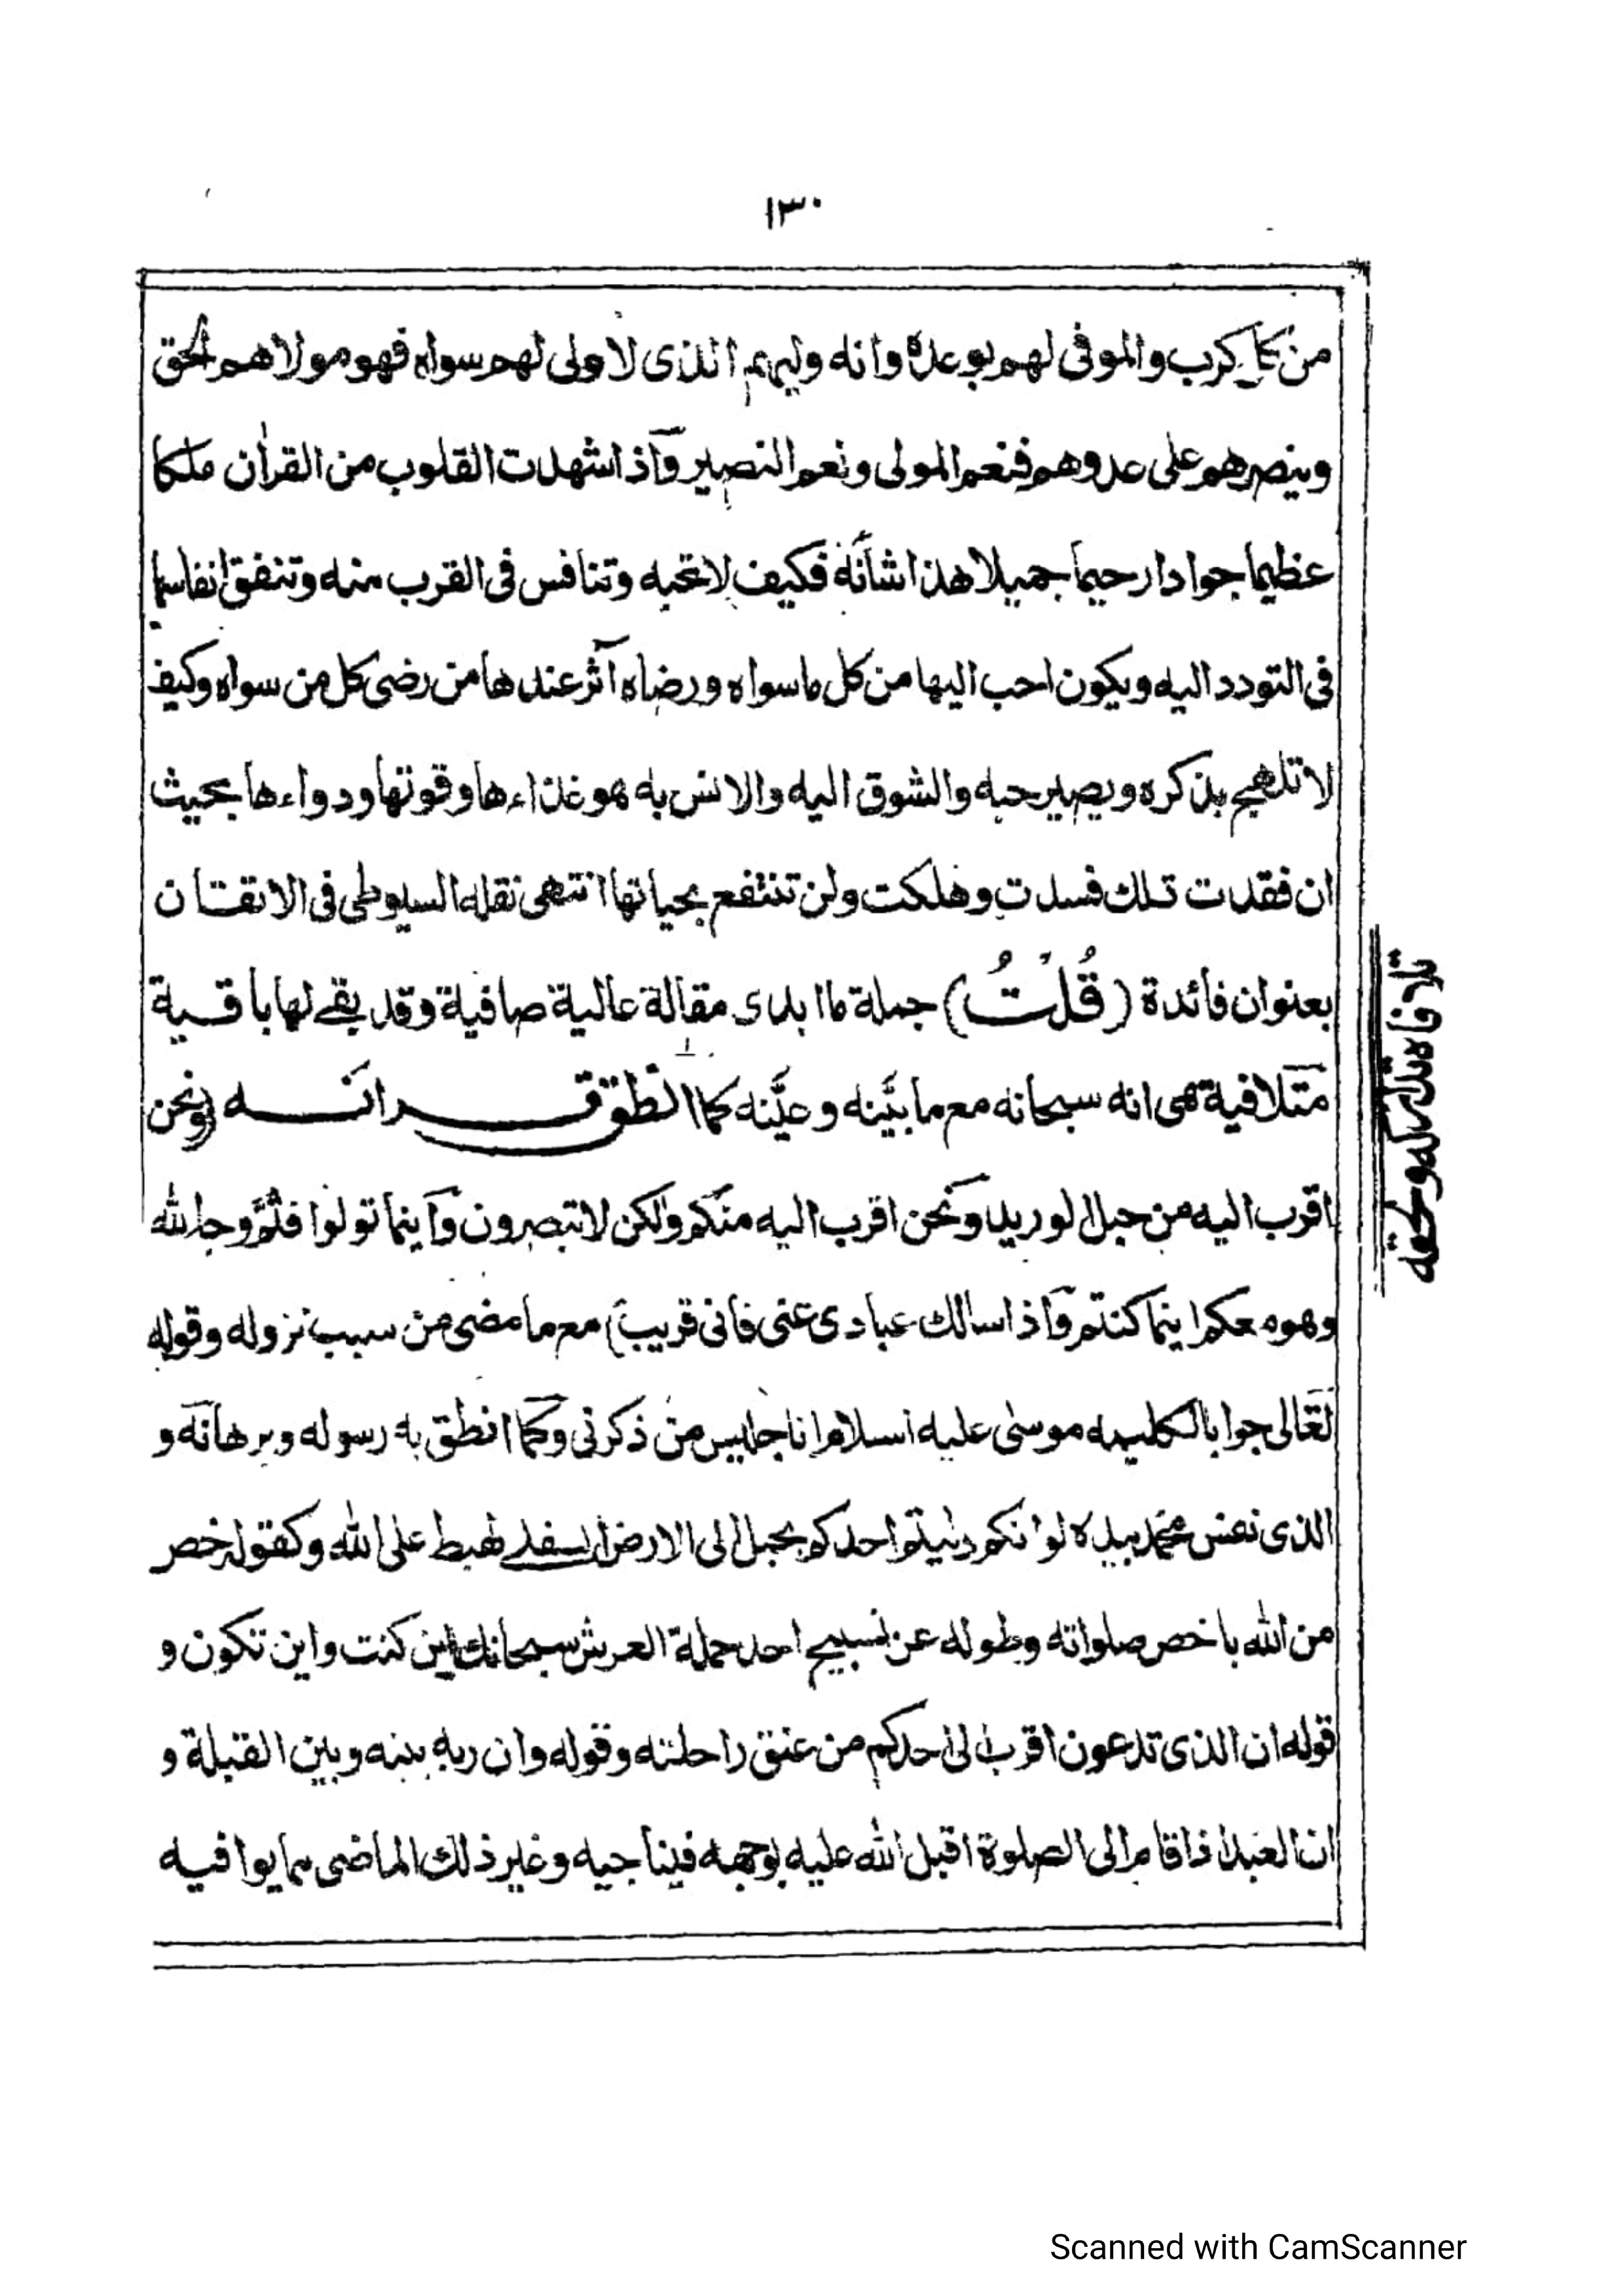 ١٣٠
من كل كرب والموفى لهم بوعده وانه وليهم الذى لا ولى لهم سواه فهو مولاهم الحق
وينصرهم على عدوهم فنعم المولى ونعم النصير وآذا شهدت القلوب من القراٰن ملكا
عظيما جوادا رحيما جميلا هذا شأنه فكيف لا تحبه وتنافس فى القرب منه وتنفق انفاسها
فى التودد اليه ويكون احب اليها من كل ما سواه ورضاه آثر عندها من رضى كل من سواه وكيف
لا تلهج بذكره ويصير حبه والشوق اليه والانس به هو غذاءها وقوتها ودواءها بحيث
ان فقدت تلك فسدت وهلكت ولن تنتفع بحياتها انتهى نقله السيوطى فى الاتقان
بعنوان فائدة (قُلْتُ) جملة ما ابدى مقالة عالية صافية وقد بقى لها باقية
متلافية هى انه سبحانه مع ما بيَّنه وعيَّنه كما انطق قرانه (ونحن
اقرب اليه من حبل الوريد ونحن اقرب اليه منكم ولكن لا تبصرون وآينما تولوا فثَمَّ وجه الله
وهو معكم اينما كنتم وآذا سالك عبادى عنى فانى قريب) مع ما مضى من سبب نزوله وقوله
تعالى جوابا لكليمه موسىٰ عليه السلام انا جليس من ذكرنى وكما انطق به رسوله وبرهانه و
الذى نفس محمد بيده لو انكم دليتم احدكم بحبل الى الارض السفلے لهبط على الله وكقوله خص
من الله باخص صلواته وطوله عن تسبيح احد حملة العرش سبحانك اين كنت واين تكون و
قوله ان الذى تدعون اقرب الىٰ احدكم من عنق راحلته وقوله وان ربه بينه وبين القبلة و
ان العبد اذا قام الى الصلوة اقبل الله عليه بوجهه فيناجيه وغير ذلك الماضى بما يوافيه
Scanned with CamScanner